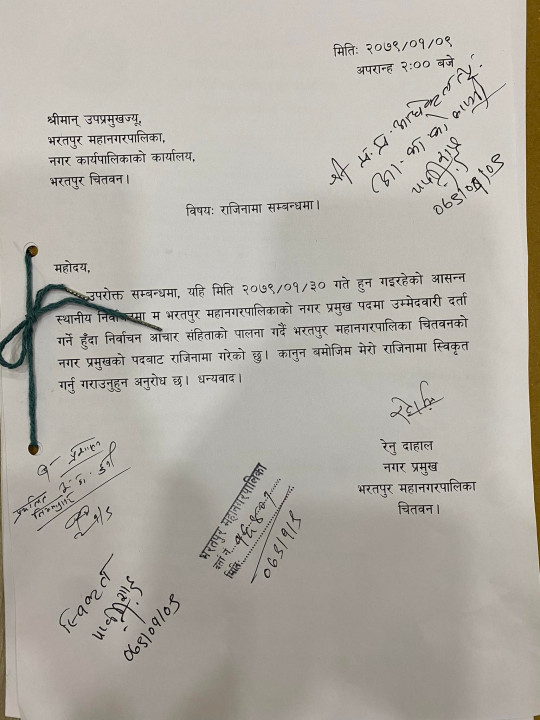 मितिः २०७९/०१/०९
अपरान्ह २:०० बजे
श्रीमान् उपप्रमुखज्यू,
भरतपुर महानगरपालिका,
नगर कार्यपालिकाको कार्यालय,
भरतपुर चितवन।
विषयः राजिनामा सम्बन्धमा।
महोदय,
उपरोक्त सम्बन्धमा, यहि मिति २०७९/०१/३० गते हुन गइरहेको आसन्न
स्थानीय निर्वाचनमा म भरतपुर महानगरपालिकाको नगर प्रमुख पदमा उम्मेदवारी दर्ता
गर्ने हुँदा निर्वाचन आचार संहिताको पालना गर्दै भरतपुर महानगरपालिका चितवनको
नगर प्रमुखको पदबाट राजिनामा गरेको छु। कानुन बमोजिम मेरो राजिनामा स्विकृत
गर्नु गराउनुहुन अनुरोध छ। धन्यवाद।
रेनु दाहाल
नगर प्रमुख
भरतपुर महानगरपालिका
चितवन।
भरतपुर महानगरपालिका
दर्ता नं.
मितिः
०७९/१/९
०७९/०१/०९
०७९/०१/०९